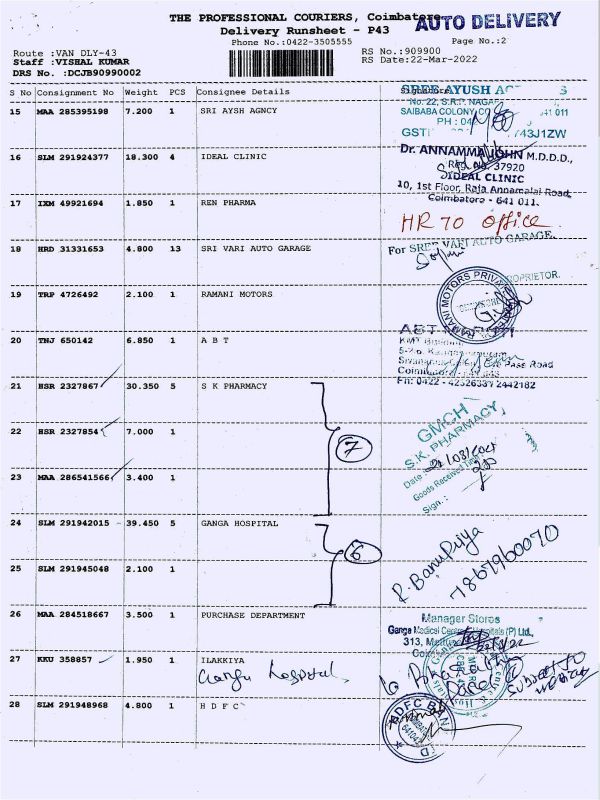 THE PROFESSIONAL COURIERS, Coimbatore
AUTO DELIVERY
Delivery Runsheet - P43
Phone No.:0422-3505555
Page No.:2
Route :VAN DLY-43
RS No.:909900
Staff :VISHAL KUMAR
RS Date:22-Mar-2022
DRS No. :DCJB90990002
S No Consignment No Weight PCS Consignee Details Signature
15 MAA 285395198 7.200 1 SRI AYSH AGNCY
SREE AYUSH
No. 22, S.R.P. NAGAR
SAIBABA COLONY
641 011
PH : 04
GSTI
743J1ZW
16 SLM 291924377 18.300 4 IDEAL CLINIC
Dr. ANNAMMA JOHN M.D.D.D.,
Reg. No. 37920
IDEAL CLINIC
10, 1st Floor, Raja Annamalai Road,
Coimbatore - 641 011.
17 IXM 49921694 1.850 1 REN PHARMA
HR TO office
18 HRD 31331653 4.800 13 SRI VARI AUTO GARAGE
For SREE VARI AUTO GARAGE.
PROPRIETOR.
19 TRP 4726492 2.100 1 RAMANI MOTORS
RAMANI MOTORS PRIVATE
20 TNJ 650142 6.850 1 A B T
Pass Road
Ph: 0422 - 4232633 2442182
21 HSR 2327867 30.350 5 S K PHARMACY
GMCH
S.K. PHARMACY
22 HSR 2327854 7.000 1
7
Date :
Goods Received Time :
23 MAA 286541566 3.400 1
Sign. :
24 SLM 291942015 39.450 5 GANGA HOSPITAL
6
R. Banu Priya
7867960070
25 SLM 291945048 2.100 1
26 MAA 284518667 3.500 1 PURCHASE DEPARTMENT
Manager Stores
Ganga Medical Centre & Hospitals (P) Ltd.,
313,
27 KKU 358857 1.950 1 ILAKKIYA
Ganga hospital
SUBJECT TO
28 SLM 291948968 4.800 1 H D F C
HDFC BAN